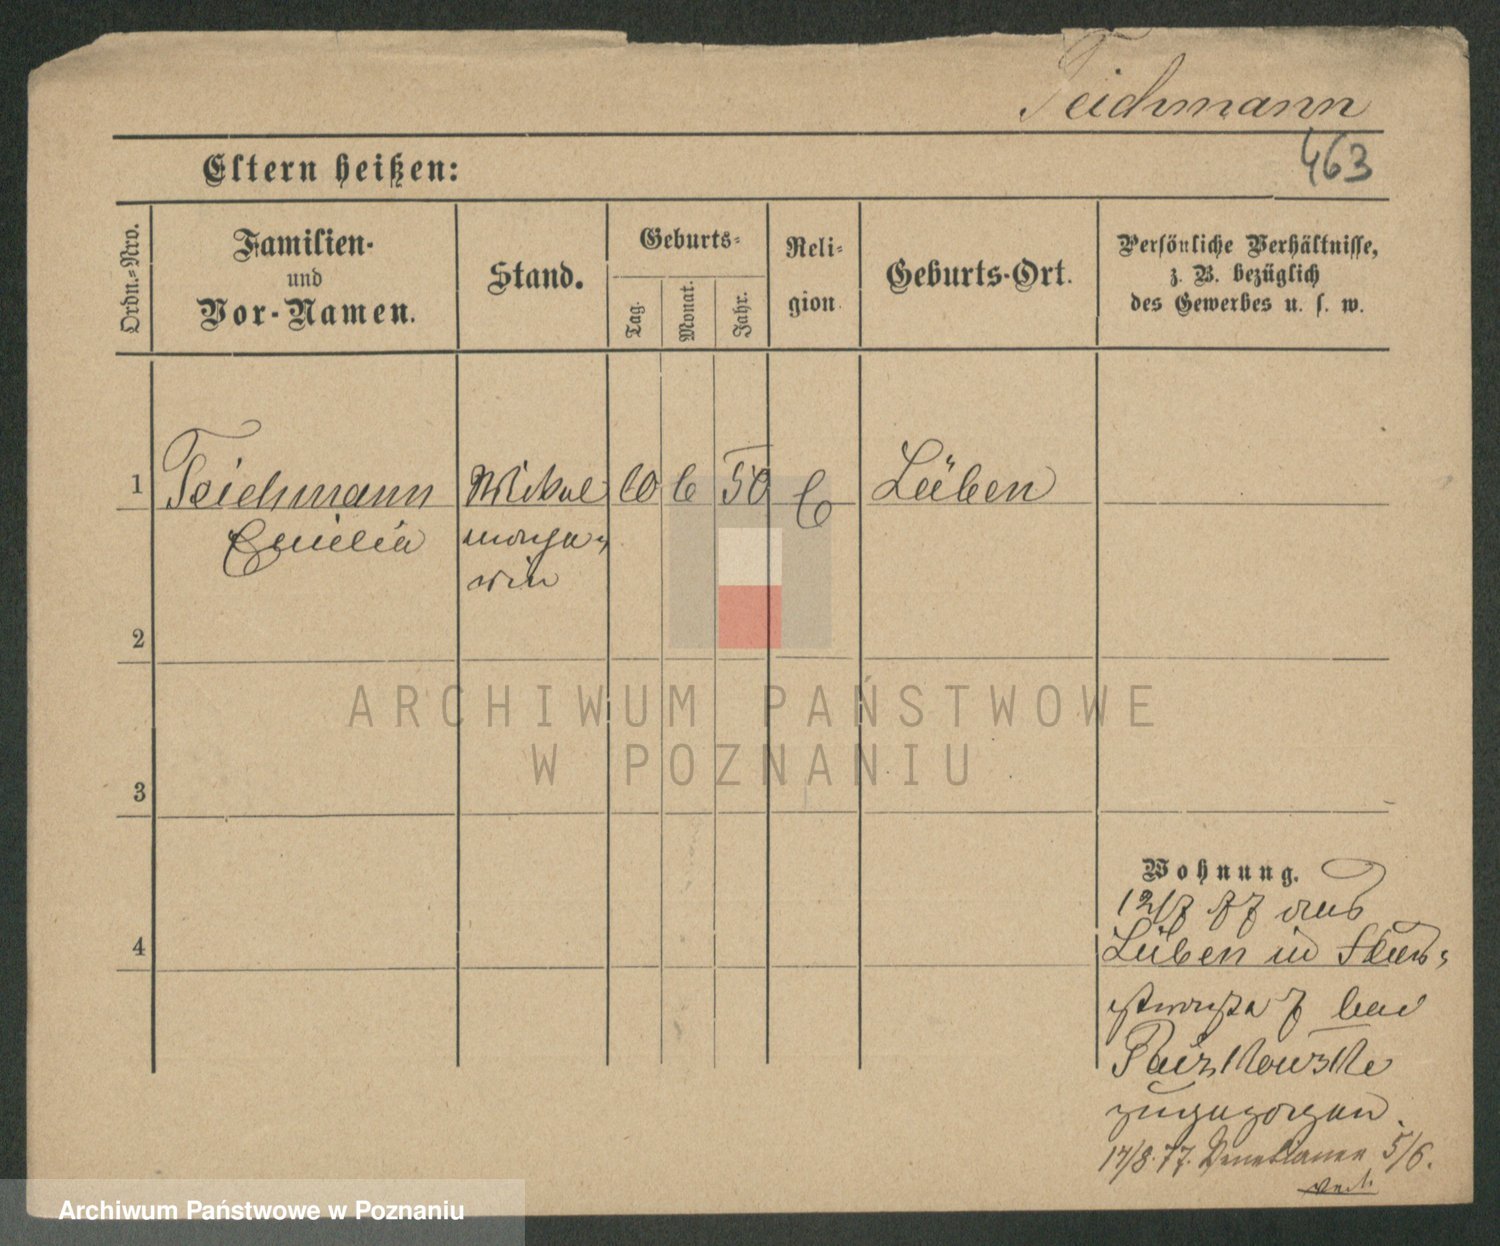 Teichmann
463
Eltern heißen:
Ordn.=Nro.
Familien-
und
Vor-Namen.
Stand.
Geburts-
Tag.
Monat.
Jahr.
Reli-
gion
Geburts-Ort.
Persönliche Verhältnisse,
z. B. bezüglich
des Gewerbes u. s. w.
1 Teichmann 10 6 50 C Lüben
Emilia
2
3
4
Wohnung.
12/7 77 aus
Lüben in
7 bei
zugezogen.
17/8. 77. 5/6.
ARCHIWUM PAŃSTWOWE
W POZNANIU
Archiwum Państwowe w Poznaniu